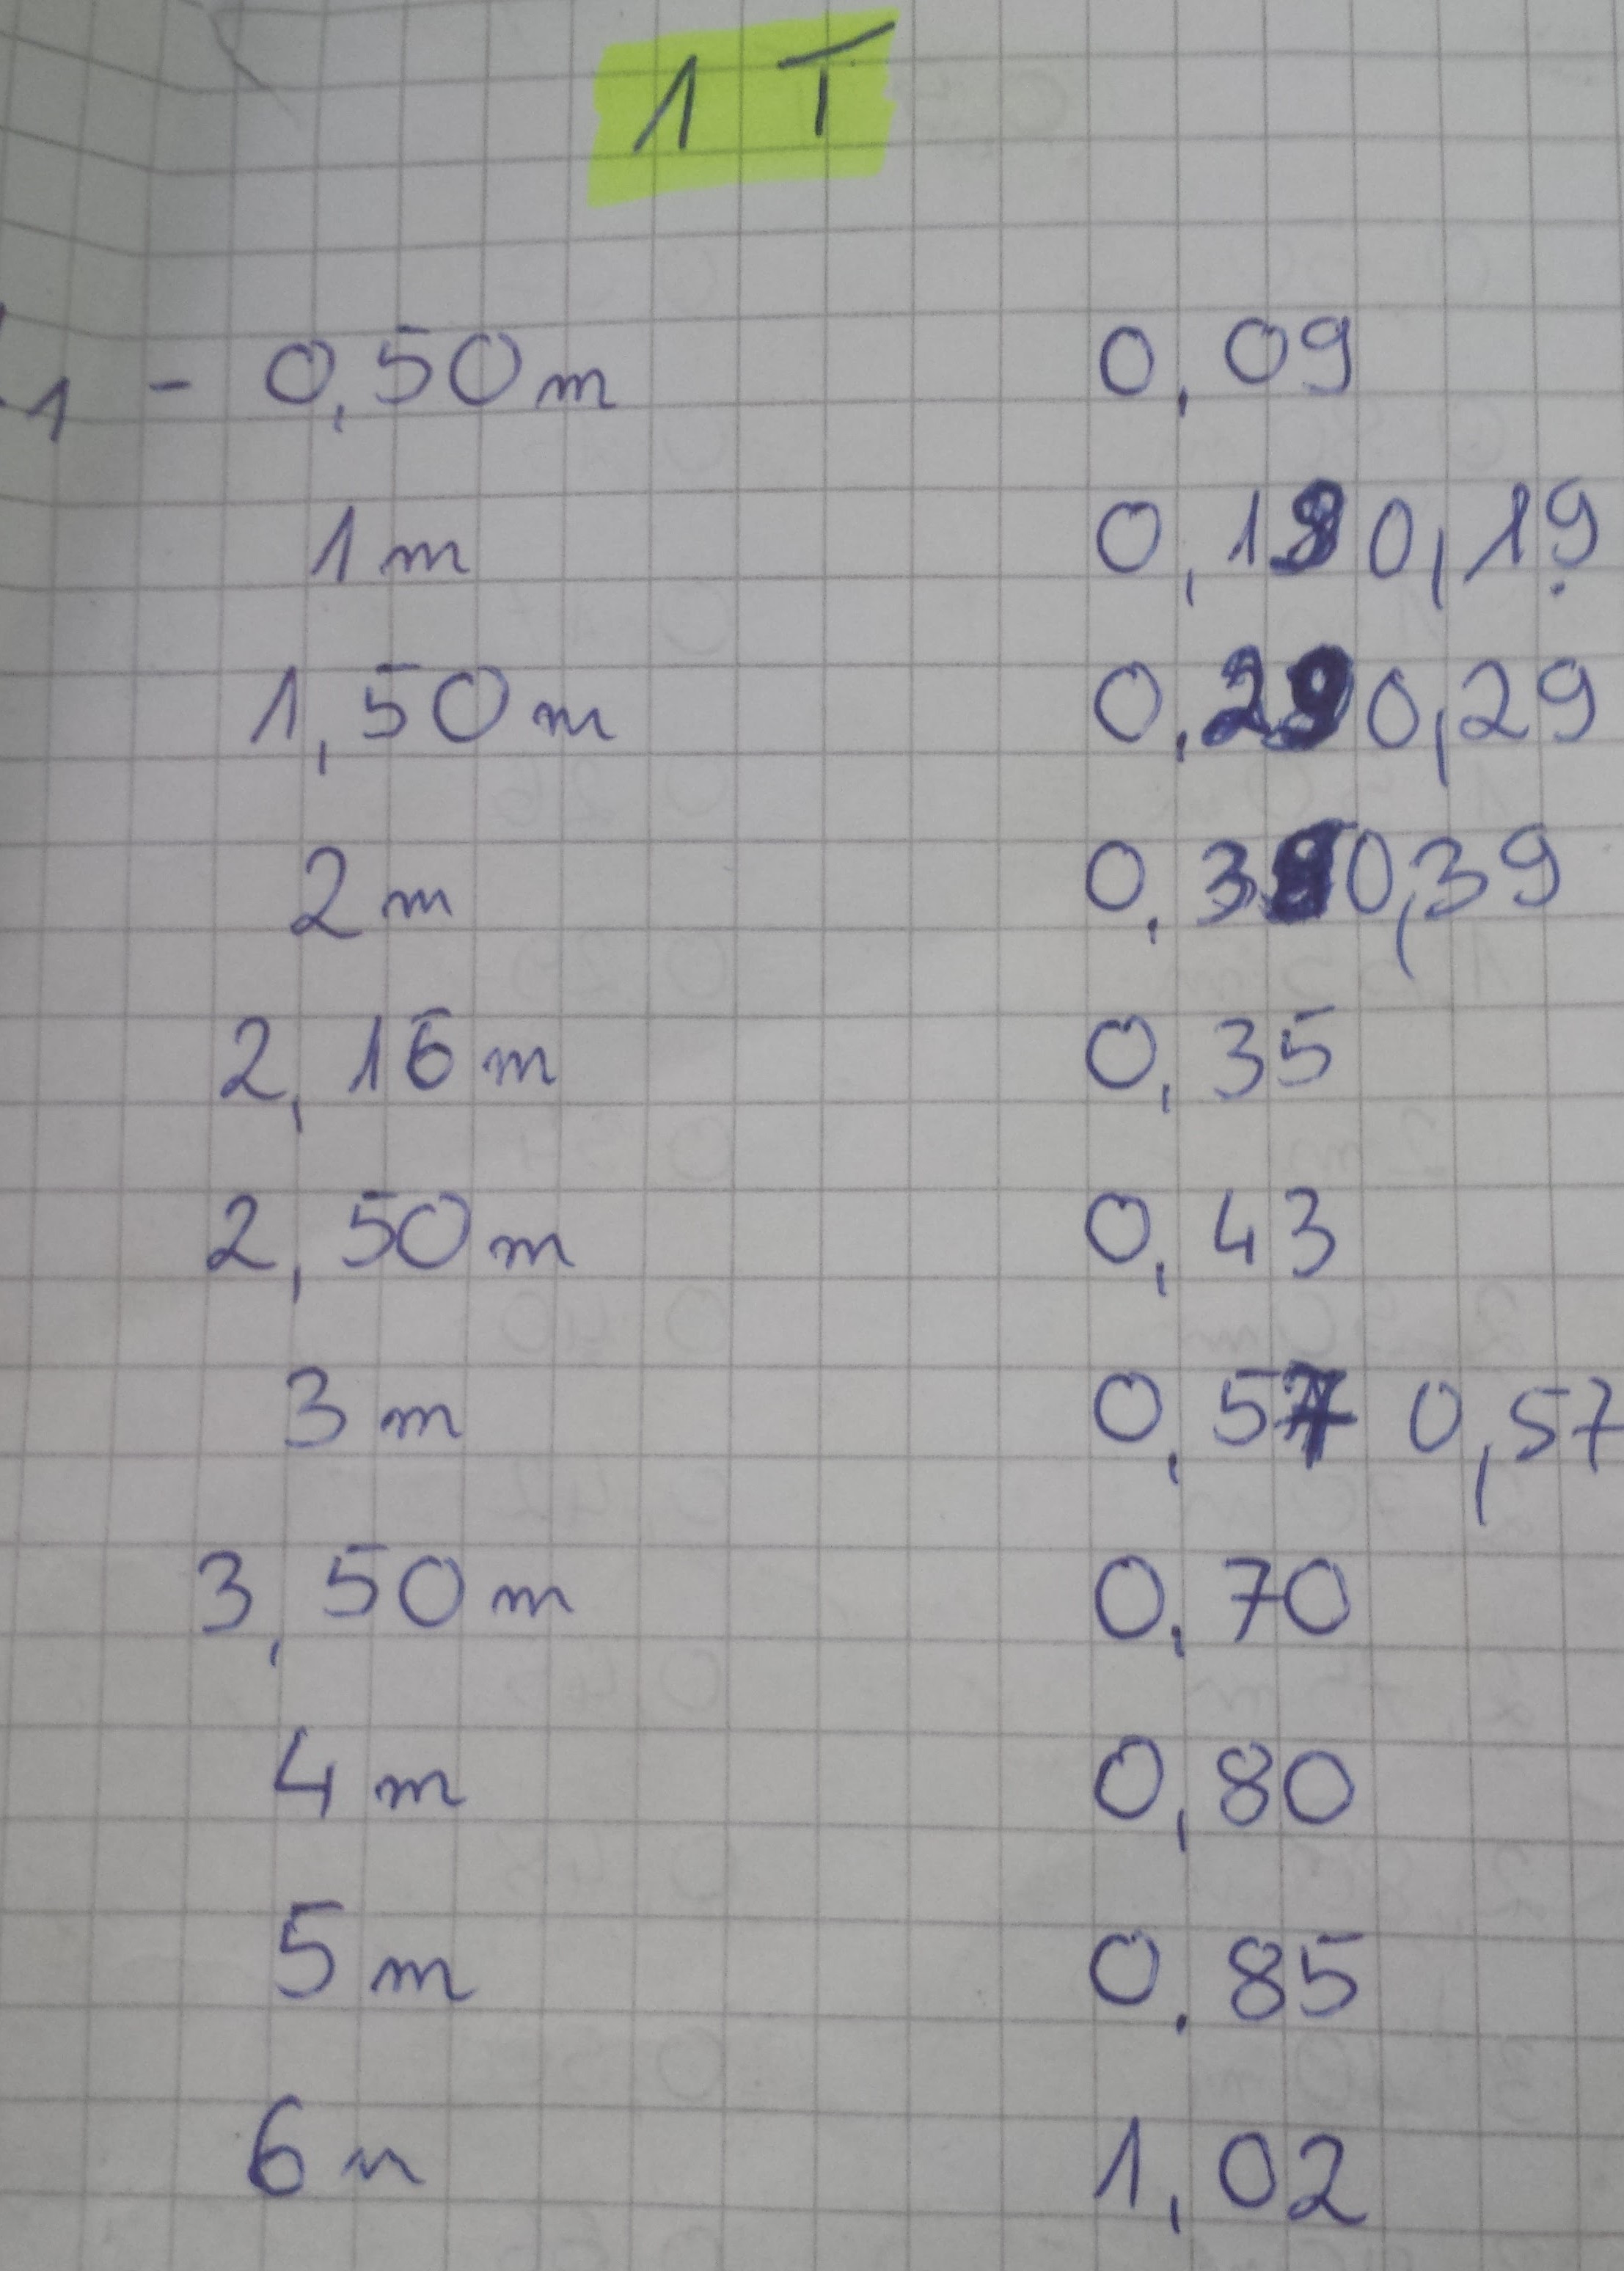 1 T
1 - 0,50 m 0,09
1 m 0,19 0,19
1,50 m 0,29 0,29
2 m 0,39 0,39
2,16 m 0,35
2,50 m 0,43
3 m 0,57 0,57
3,50 m 0,70
4 m 0,80
5 m 0,85
6 m 1,02